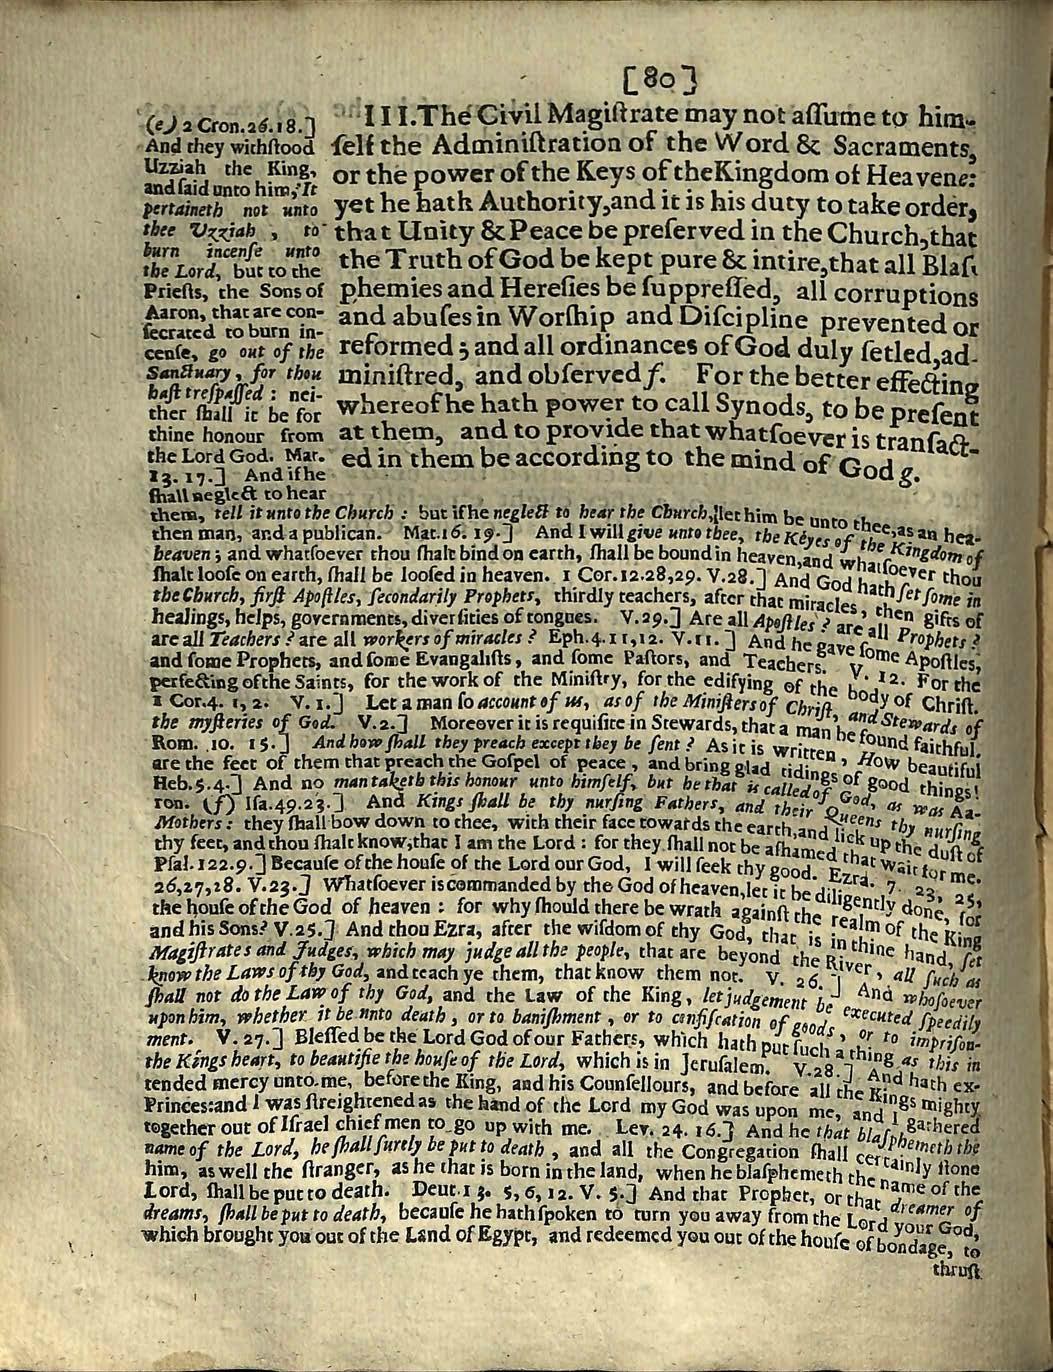 [80]
III. The Civil Magiſtrate may not aſſume to him-
ſelf the Adminiſtration of the Word & Sacraments,
or the power of the Keys of theKingdom of Heavene:
yet he hath Authority,and it is his duty to take order,
that Unity & Peace be preſerved in the Church,that
the Truth of God be kept pure & intire,that all Blaſ
phemies and Hereſies be ſuppreſſed, all corruptions
and abuſes in Worſhip and Diſcipline prevented or
reformed ; and all ordinances of God duly ſetled,ad-
miniſtred, and obſerved f. For the better effecting
whereof he hath power to call Synods, to be preſent
at them, and to provide that whatſoever is tranſact-
ed in them be according to the mind of God g.
(e) 2 Cron.26.18.]
And they withſtood
Uzziah the King,
and ſaid unto him, It
pertaineth not unto
thee Uzziah , to
burn incenſe unto
the Lord, but to the
Prieſts, the Sons of
Aaron, that are con-
ſecrated to burn in-
cenſe, go out of the
Sanctuary , for thou
haſt treſpaſſed : nei-
ther ſhall it be for
thine honour from
the Lord God. Mat.
13. 17.] And if he
ſhall neglect to hear
them, tell it unto the Church : but if he neglect to hear the Church, let him be unto thee,as an hea-
then man, and a publican. Mat.16. 19.] And I will give unto thee, the Keyes of the Kingdom of
heaven ; and whatſoever thou ſhalt bind on earth, ſhall be bound in heaven,and whatſoever thou
ſhalt looſe on earth, ſhall be looſed in heaven. 1 Cor.12.28,29. V.28.] And God hath ſet ſome in
the Church, firſt Apoſtles, ſecondarily Prophets, thirdly teachers, after that miracles, then gifts of
healings, helps, governments, diverſities of tongues. V.29.] Are all Apoſtles ? are all Prophets ?
are all Teachers ? are all workers of miracles ? Eph.4.11,12. V.11.] And he gave ſome Apoſtles,
and ſome Prophets, and ſome Evangaliſts, and ſome Paſtors, and Teachers. V. 12. For the
perfecting of the Saints, for the work of the Miniſtry, for the edifying of the body of Chriſt.
1 Cor.4. 1, 2. V. 1.] Let a man ſo account of us, as of the Miniſters of Chriſt, and Stewards of
the myſteries of God. V.2.] Moreover it is requiſite in Stewards, that a man be found faithful.
Rom. 10. 15.] And how ſhall they preach except they be ſent ? As it is written , How beautiful
are the feet of them that preach the Goſpel of peace , and bring glad tidings of good things!
Heb.5.4.] And no man taketh this honour unto himſelf, but he that is called of God, as was Aa-
ron. (f) Iſa.49.23.] And Kings ſhall be thy nurſing Fathers, and their Queens thy nurſing
Mothers : they ſhall bow down to thee, with their face towards the earth,and lick up the duſt of
thy feet, and thou ſhalt know,that I am the Lord : for they ſhall not be aſhamed that wait for me.
Pſal. 122.9.] Becauſe of the houſe of the Lord our God, I will ſeek thy good. Ezra. 7. 23, 25,
26,27,28. V.23.] Whatſoever is commanded by the God of heaven,let it be diligently done, for
the houſe of the God of heaven : for why ſhould there be wrath againſt the realm of the King
and his Sons? V.25.] And thou Ezra, after the wiſdom of thy God, that is in thine hand, ſet
Magiſtrates and Judges, which may judge all the people, that are beyond the River, all ſuch as
know the Laws of thy God, and teach ye them, that know them not. V. 26.] And whoſoever
ſhall not do the Law of thy God, and the Law of the King, let judgement be executed ſpeedily
upon him, whether it be unto death , or to baniſhment , or to confiſcation of goods , or to impriſon-
ment. V. 27.] Bleſſed be the Lord God of our Fathers, which hath put ſuch a thing as this in
the Kings heart, to beautifie the houſe of the Lord, which is in Jeruſalem. V.28.] And hath ex-
tended mercy unto me, before the King, and his Counſellours, and before all the Kings mighty
Princes:and I was ſtreightened as the hand of the Lord my God was upon me, and I gathered
together out of Iſrael chief men to go up with me. Lev. 24. 16.] And he that blaſphemeth the
name of the Lord, he ſhall ſurely be put to death , and all the Congregation ſhall certainly ſtone
him, as well the ſtranger, as he that is born in the land, when he blaſphemeth the name of the
Lord, ſhall be put to death. Deut.13. 5, 6, 12. V. 5.] And that Prophet, or that dreamer of
dreams, ſhall be put to death, becauſe he hath ſpoken to turn you away from the Lord your God,
which brought you out of the Land of Egypt, and redeemed you out of the houſe of bondage, to
thruſt